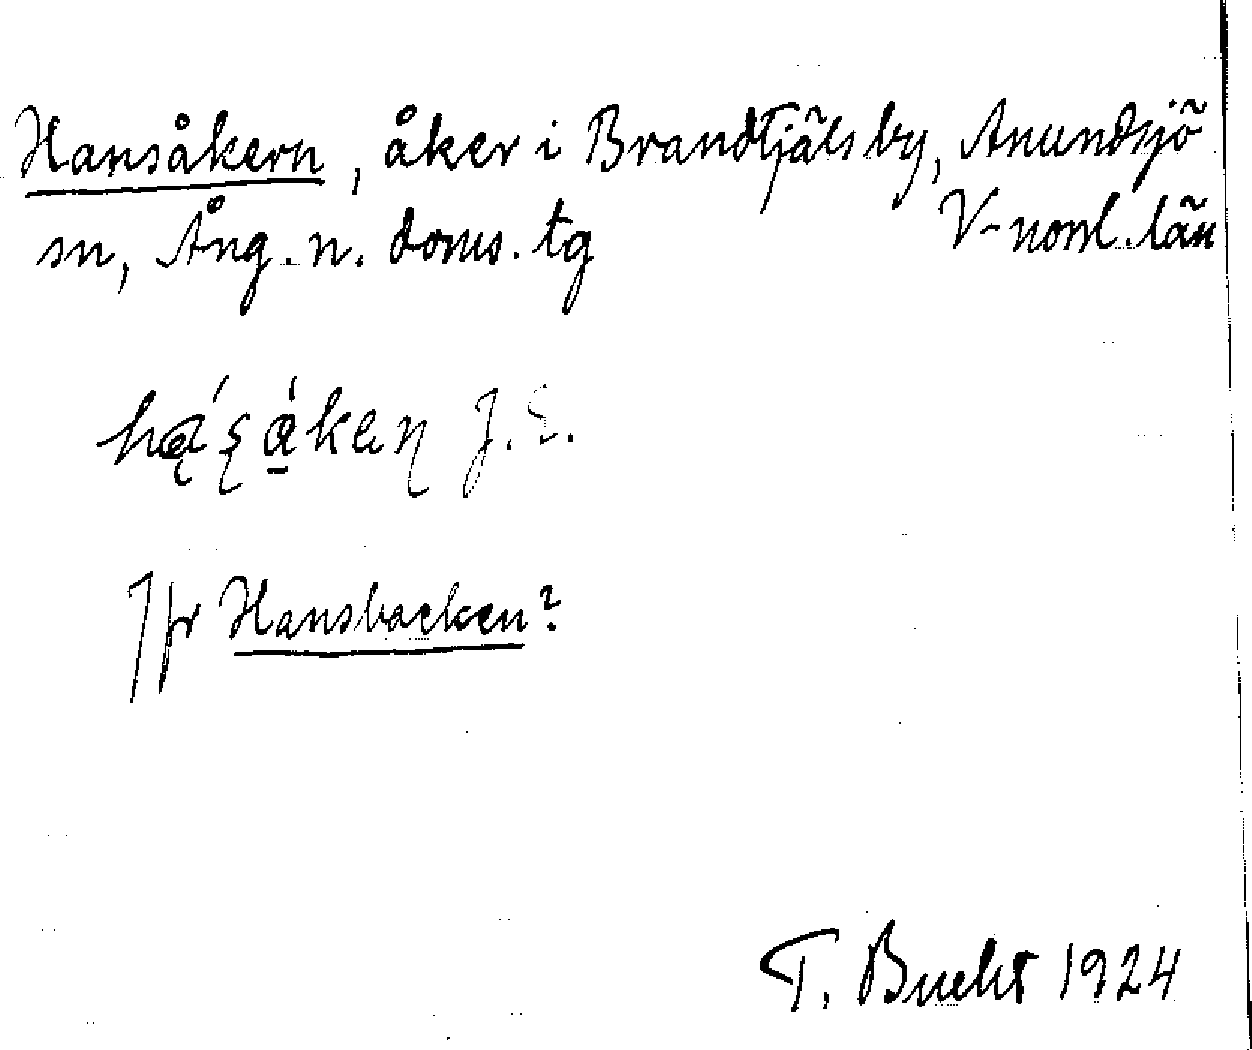 Hansåkern, åker i Brandtjäls by, Anundsjö
sn, Ång. n. doms. tg V-norrl. län
J. S.
Jfr Hansbacken?
T. Bucht 1924